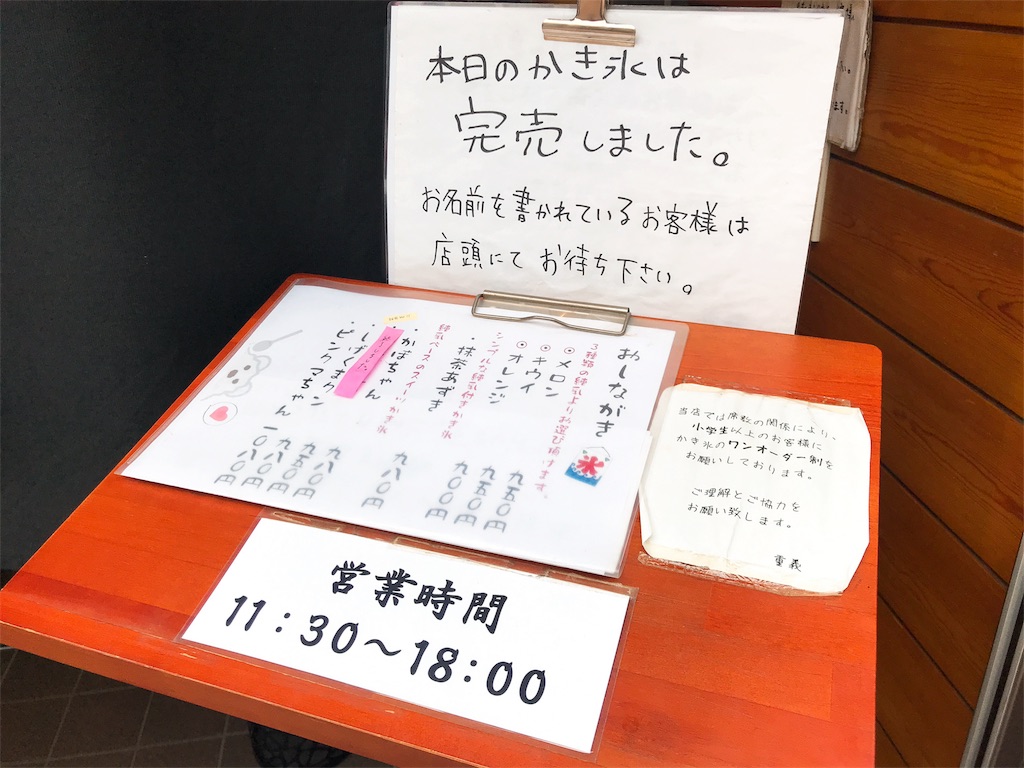 本日のかき氷は
完売しました。
お名前を書かれているお客様は
店頭にてお待ち下さい。
おしながき
氷
3種類の練乳よりお選び頂けます。
⦿メロン 九五〇円
⦿キウイ 九五〇円
⦿オレンジ 九〇〇円
シンプルな練乳付きかき氷
・抹茶あずき 九八〇円
練乳ベースのスイーツかき氷
・かぼちゃん 九八〇円
・しげくまくん
・ピンクマちゃん 一〇八〇円
当店では席数の関係により、
小学生以上のお客様に
かき氷のワンオーダー制を
お願いしております。
ご理解とご協力を
お願い致します。
重義
営業時間
11:30～18:00